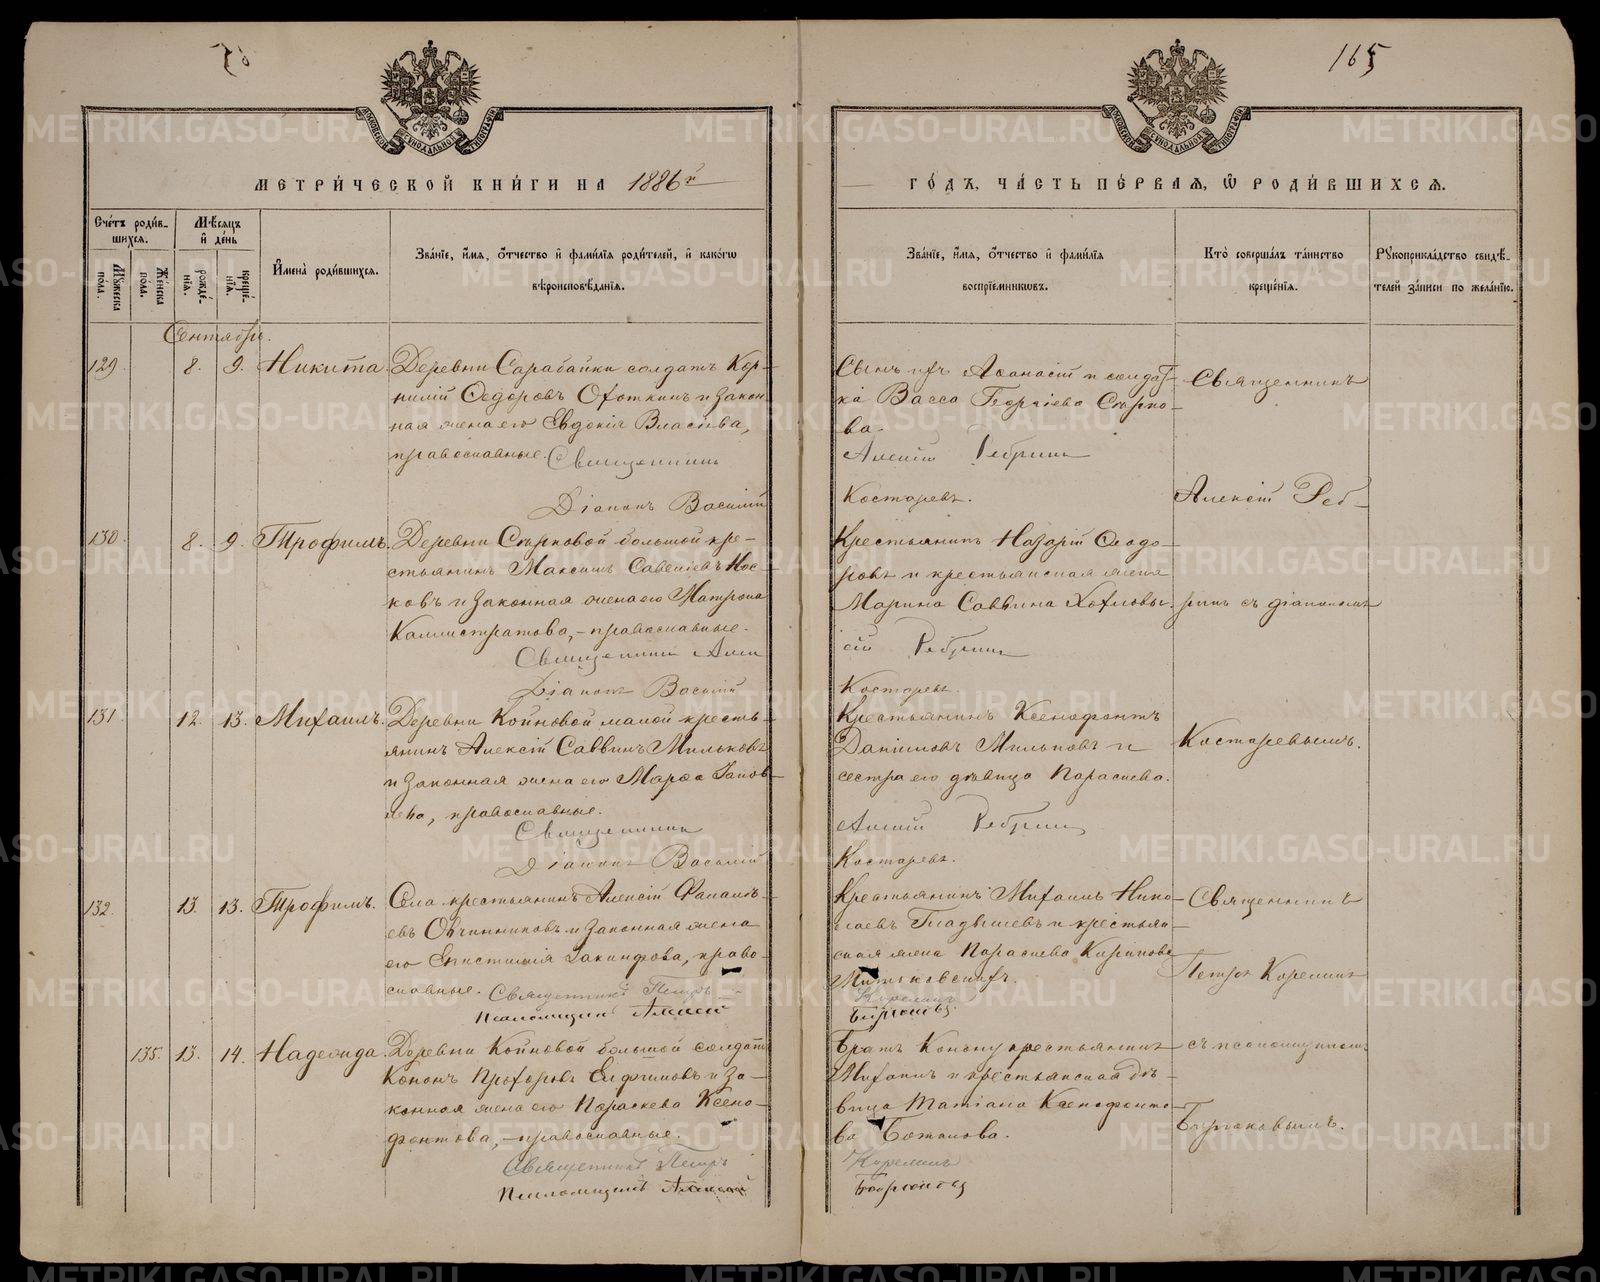 165
МЕТРИ́ЧЕСКОЙ КНИ́ГИ НА 1886й
ГО́ДЪ, ЧА́СТЬ ПЕ́РВАЯ, Ѡ РОДИ́ВШИХСЯ.
Сче́тъ роди́в-
шихся.
Му́жеска пола.
Же́нска пола.
Мѣ́сяцъ
и де́нь
рожде́-
нія.
креще́-
нія.
И̓мена̀ роди́вшихся.
Зва́ніе, и́мя, о́тчество и фами́лія роди́телей, и како́гѡ
вѣроисповѣ́данія.
Зва́ніе, и́мя, о́тчество и фами́лія
воспріе́мникѡвъ.
Кто̀ соверша́лъ та́инство
креще́нія.
Рꙋкоприкла́дство свидѣ́-
телей за́писи по жела́нію.
Сентябрь.
129 8. 9. Никита. Деревни Сарабайки солдатъ Кор-
нилій Ѳедоровъ Охоткинъ и закон-
ная жена его Евдокія Власіева,
православные. Священникъ
Діаконъ Василій
Сынъ ихъ Аѳанасій и солдат-
ка Васса Георгіева Сѣрко-
ва.
Алексій Ребринъ
Костаревъ.
Священникъ
Алексій Реб-
130. 8. 9. Трофимъ. Деревни Сѣрковой большой кре-
стьянинъ Максимъ Савеліевъ Нос-
ковъ и законная жена его Матрона
Каллистратова, - православные.
Священникъ Алек
Діаконъ Василій
Крестьянинъ Назарій Ѳеодо-
ровъ и крестьянская жена
Марина Саввина
сій Ребринъ
Костаревъ.
ринъ съ діакономъ
131. 12. 13. Михаилъ. Деревни Койновой малой кресть-
янинъ Алексій Саввинъ Мильковъ
и законная жена его Марѳа Іаков-
лева, православные.
Священникъ
Діаконъ Василій
Крестьянинъ Ксенофонтъ
Даніиловъ Мильковъ и
сестра его дѣвица Параскева.
Алексій Ребринъ
Костаревъ.
Костаревымъ.
132. 13. 13. Трофимъ. Села крестьянинъ Алексій
евъ Овчинниковъ и законная жена
его Епистимія Іакинфова, право-
славные. Священникъ Петръ
Псаломщикъ Алексій
Крестьянинъ Михаилъ Нико-
лаевъ Гладышевъ и крестьян-
ская жена Параскева
Карелинъ
Бирюковъ
Священникъ
Петръ Карелинъ
135. 13. 14. Надежда. Деревни Койновой большой солдатъ
Кононъ Прохоровъ и за-
конная жена его Параскева Ксено-
фонтова, - православные.
Священникъ Петръ
Псаломщикъ Алексій
Братъ Конону крестьянинъ
Михаилъ и крестьянская дѣ-
вица Татіана Ксенофонто-
ва
Карелинъ
Бирюковъ
съ псаломщикомъ
Бирюковымъ.
METRIKI.GASO-URAL.RU